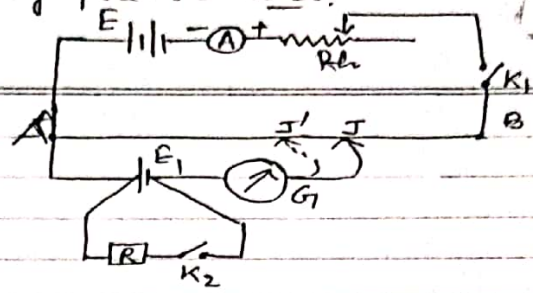 E - A +
Rh
K1
A J' J B
E1
G
R
K2